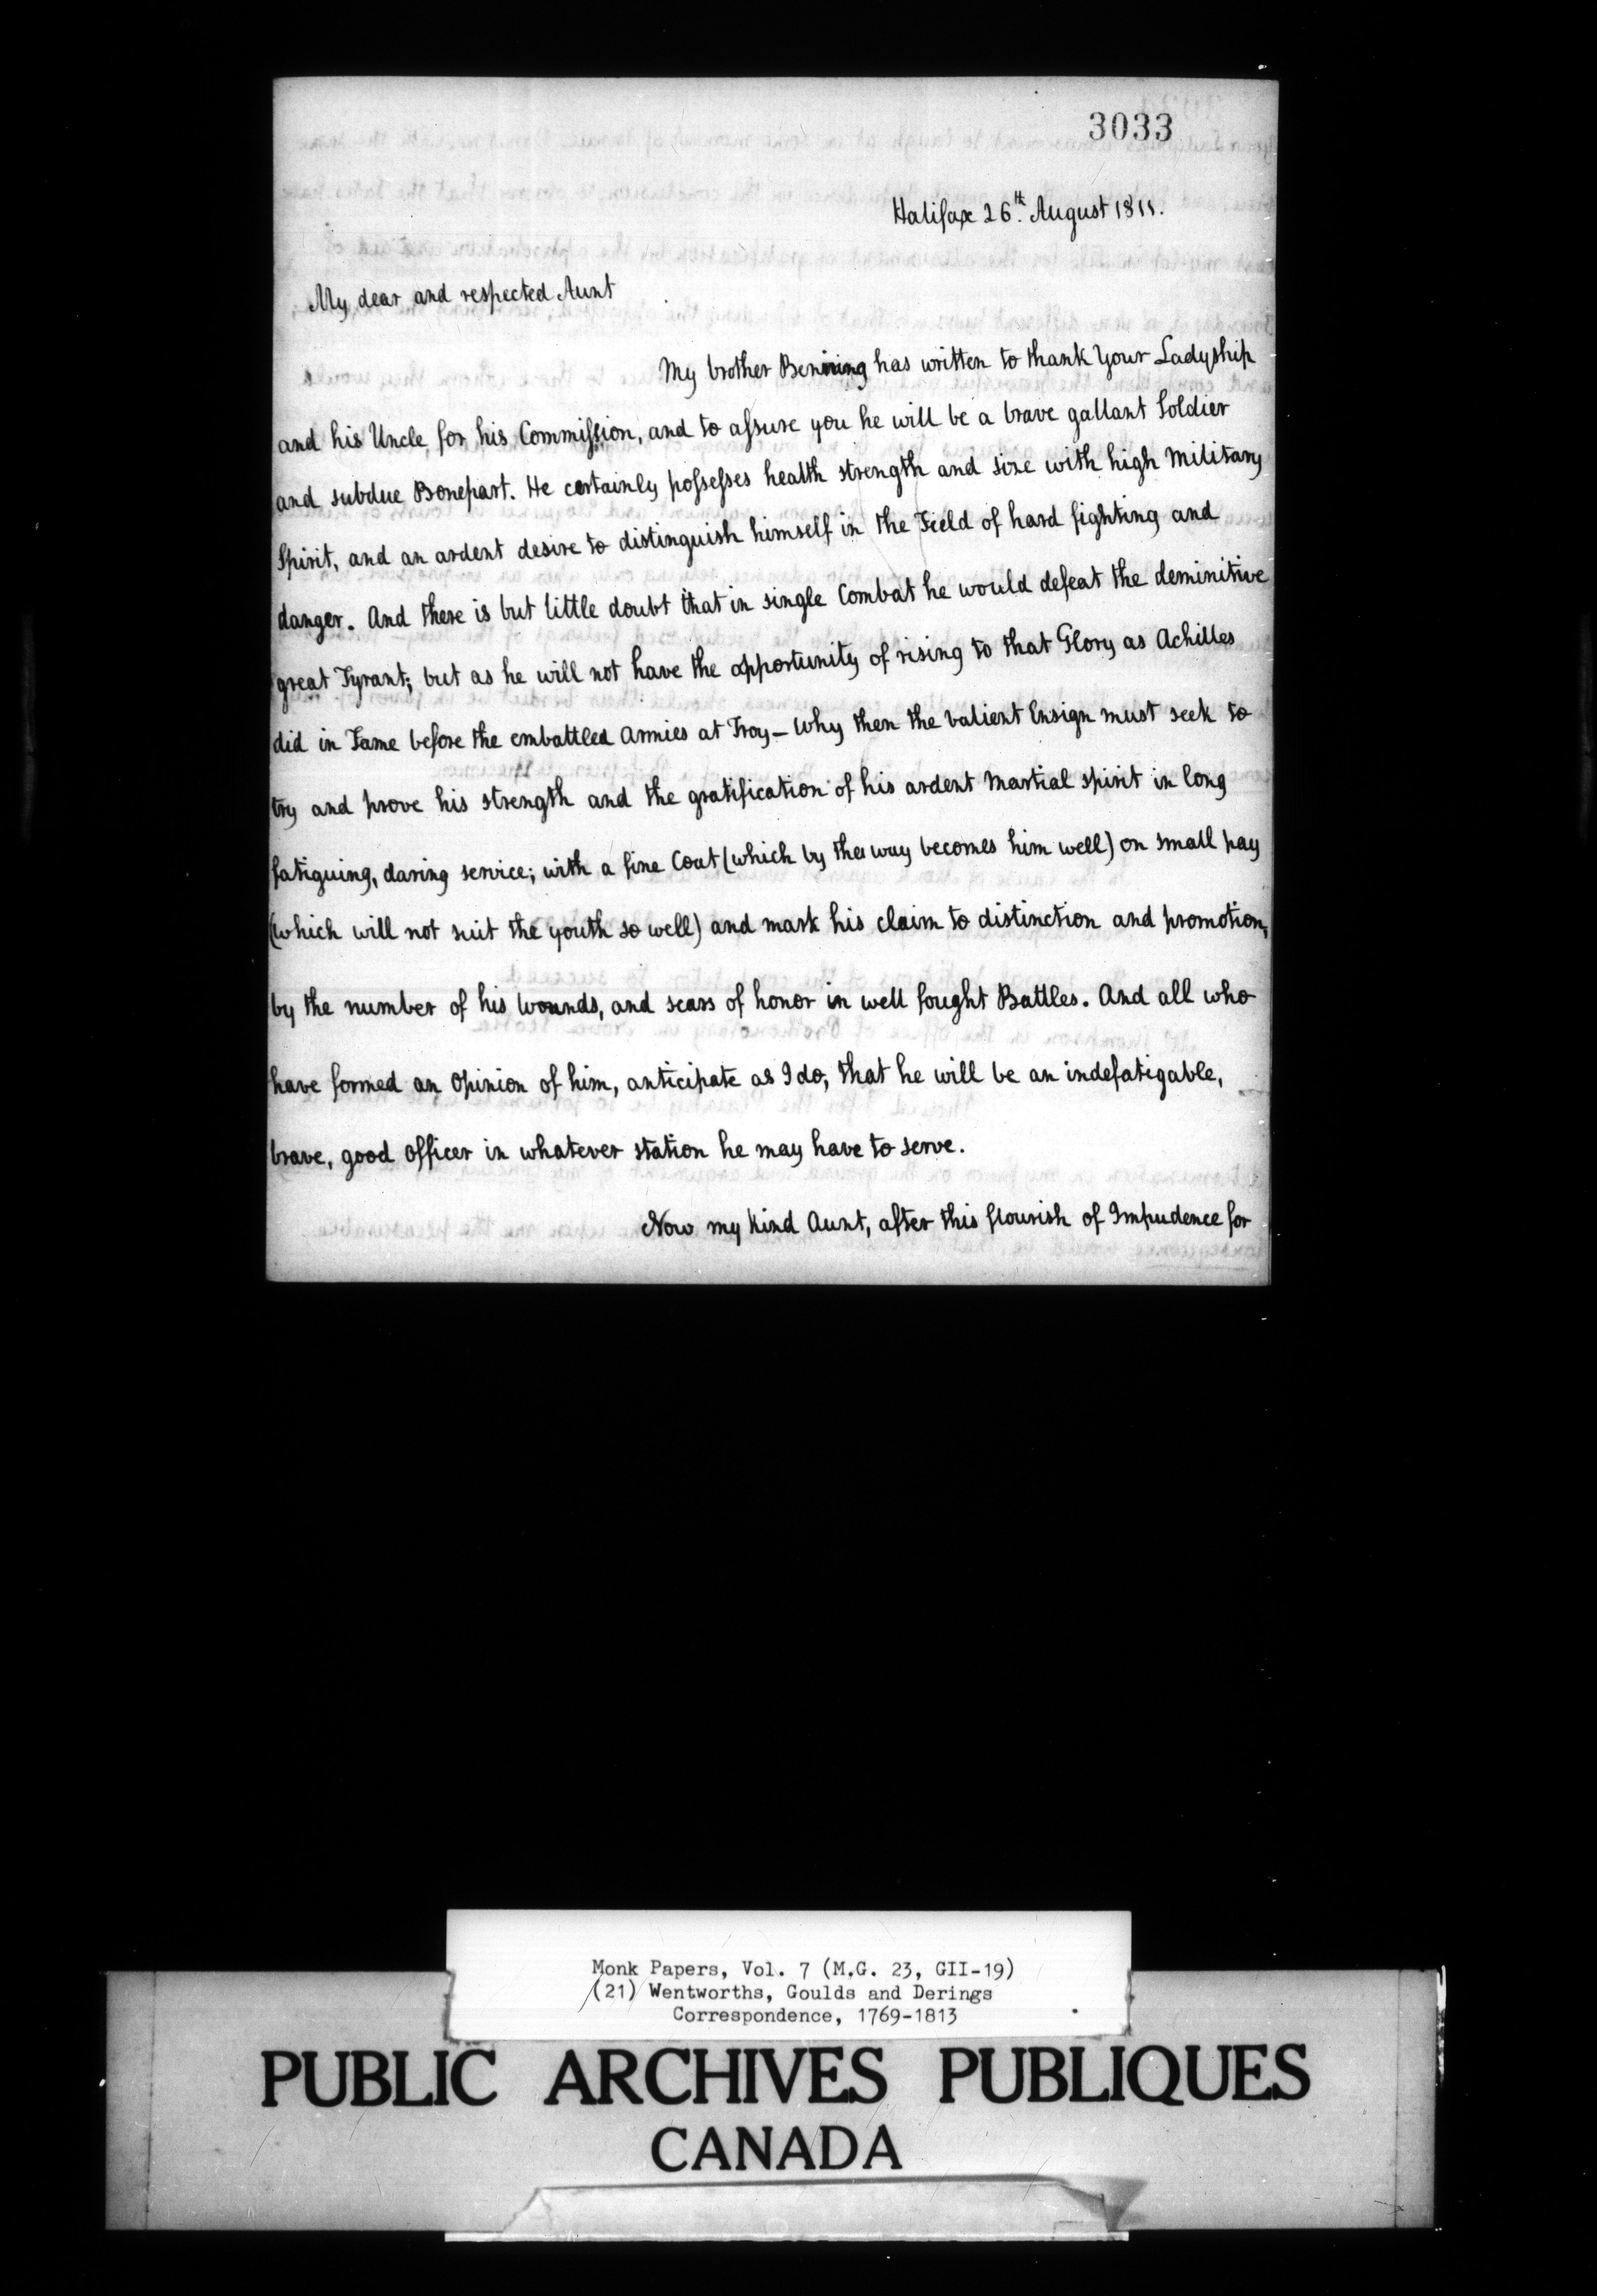 3033
Halifax 26th. August 1811.
My dear and respected Aunt
My brother Benning has written to thank Your Ladyship
and his Uncle, for his Commission, and to assure you he will be a brave gallant Soldier
and subdue Bonepart. He certainly possesses health strength and size with high Military
Spirit, and an ardent desire to distinguish himself in the Field of hard fighting and
danger. And there is but little doubt that in single Combat he would defeat the deminitive
great Tyrant; but as he will not have the opportunity of rising to that Glory as Achilles
did in Fame before the embattled Armies at Troy – Why then the valient Ensign must seek to
try and prove his strength and the gratification of his ardent Martial spirit in long
fatiguing, daring service; with a fine Coat (which by the way becomes him well) on small pay
(which will not suit the youth so well) and mark his claim to distinction and promotion,
by the number of his wounds, and scars of honor in well fought Battles. And all who
have formed an Opinion of him, anticipate as I do, that he will be an indefatigable,
brave, good Officer in whatever station he may have to serve.
Now my Kind Aunt, after this flourish of Impudence for
Monk Papers, Vol. 7 (M.G. 23, GII-19)
(21) Wentworths, Goulds and Derings
Correspondence, 1769-1813
PUBLIC ARCHIVES PUBLIQUES
CANADA